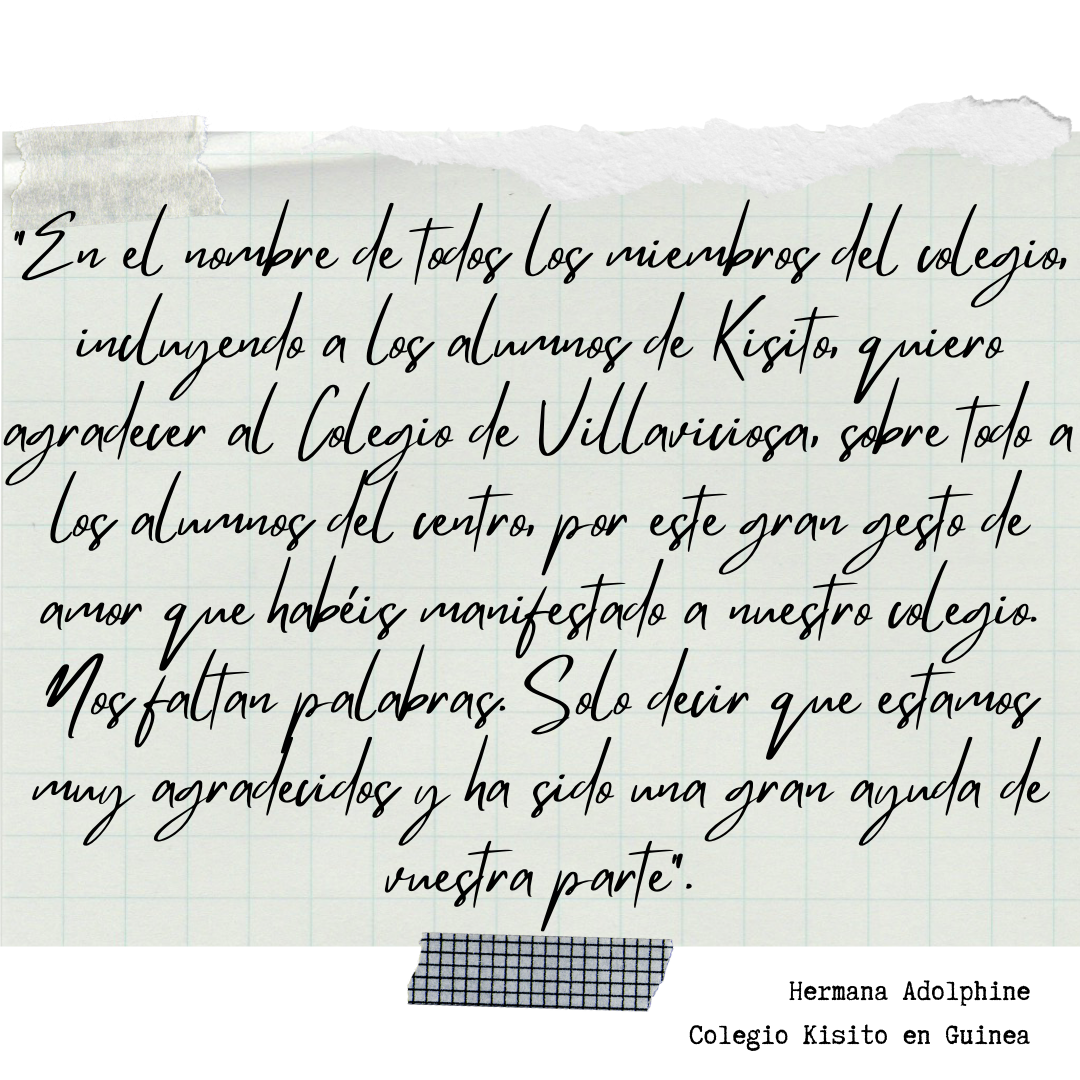 "En el nombre de todos los miembros del colegio,
incluyendo a los alumnos de Kisito, quiero
agradecer al Colegio de Villaviciosa, sobre todo a
los alumnos del centro, por este gran gesto de
amor que habéis manifestado a nuestro colegio.
Nos faltan palabras. Solo decir que estamos
muy agradecidos y ha sido una gran ayuda de
vuestra parte".
Hermana Adolphine
Colegio Kisito en Guinea